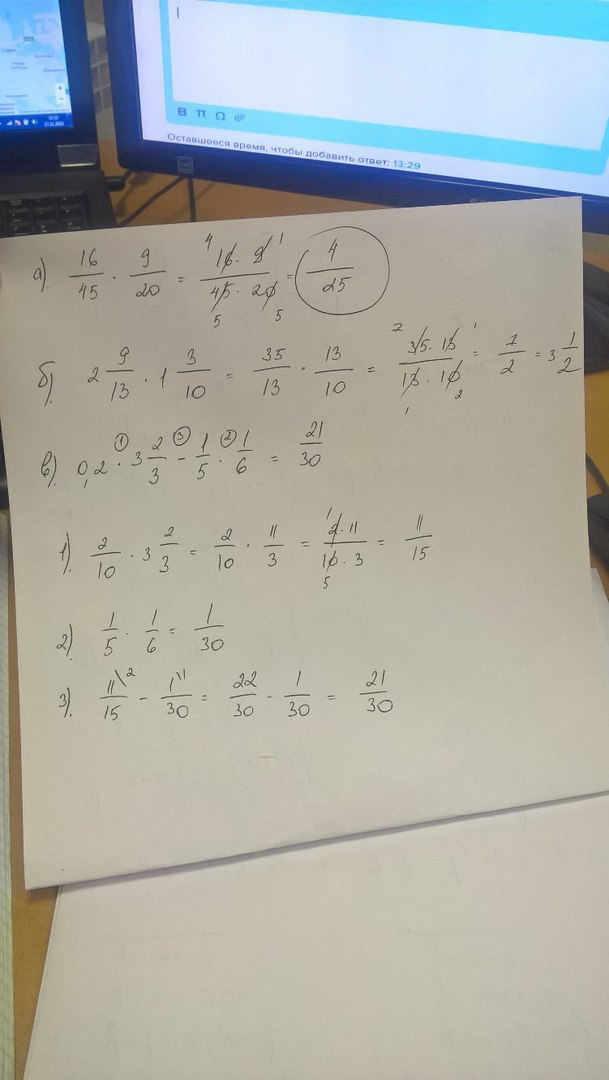 В π Ω
Оставшееся время, чтобы добавить ответ: 13:29
а). 16/45 · 9/20 = 4 16 · 9 1 / 45 · 20 5 5 = 4/25
б). 2 9/13 · 1 3/10 = 35/13 · 13/10 = 7 35 · 13 1 / 13 · 10 1 2 = 7/2 = 3 1/2
в). 0,2 ·① 3 2/3 -③ 1/5 ·② 1/6 = 21/30
1). 2/10 · 3 2/3 = 2/10 · 11/3 = 1 2 · 11 / 10 · 3 5 = 11/15
2). 1/5 · 1/6 = 1/30
3). 11\2/15 - 1\1/30 = 22/30 - 1/30 = 21/30